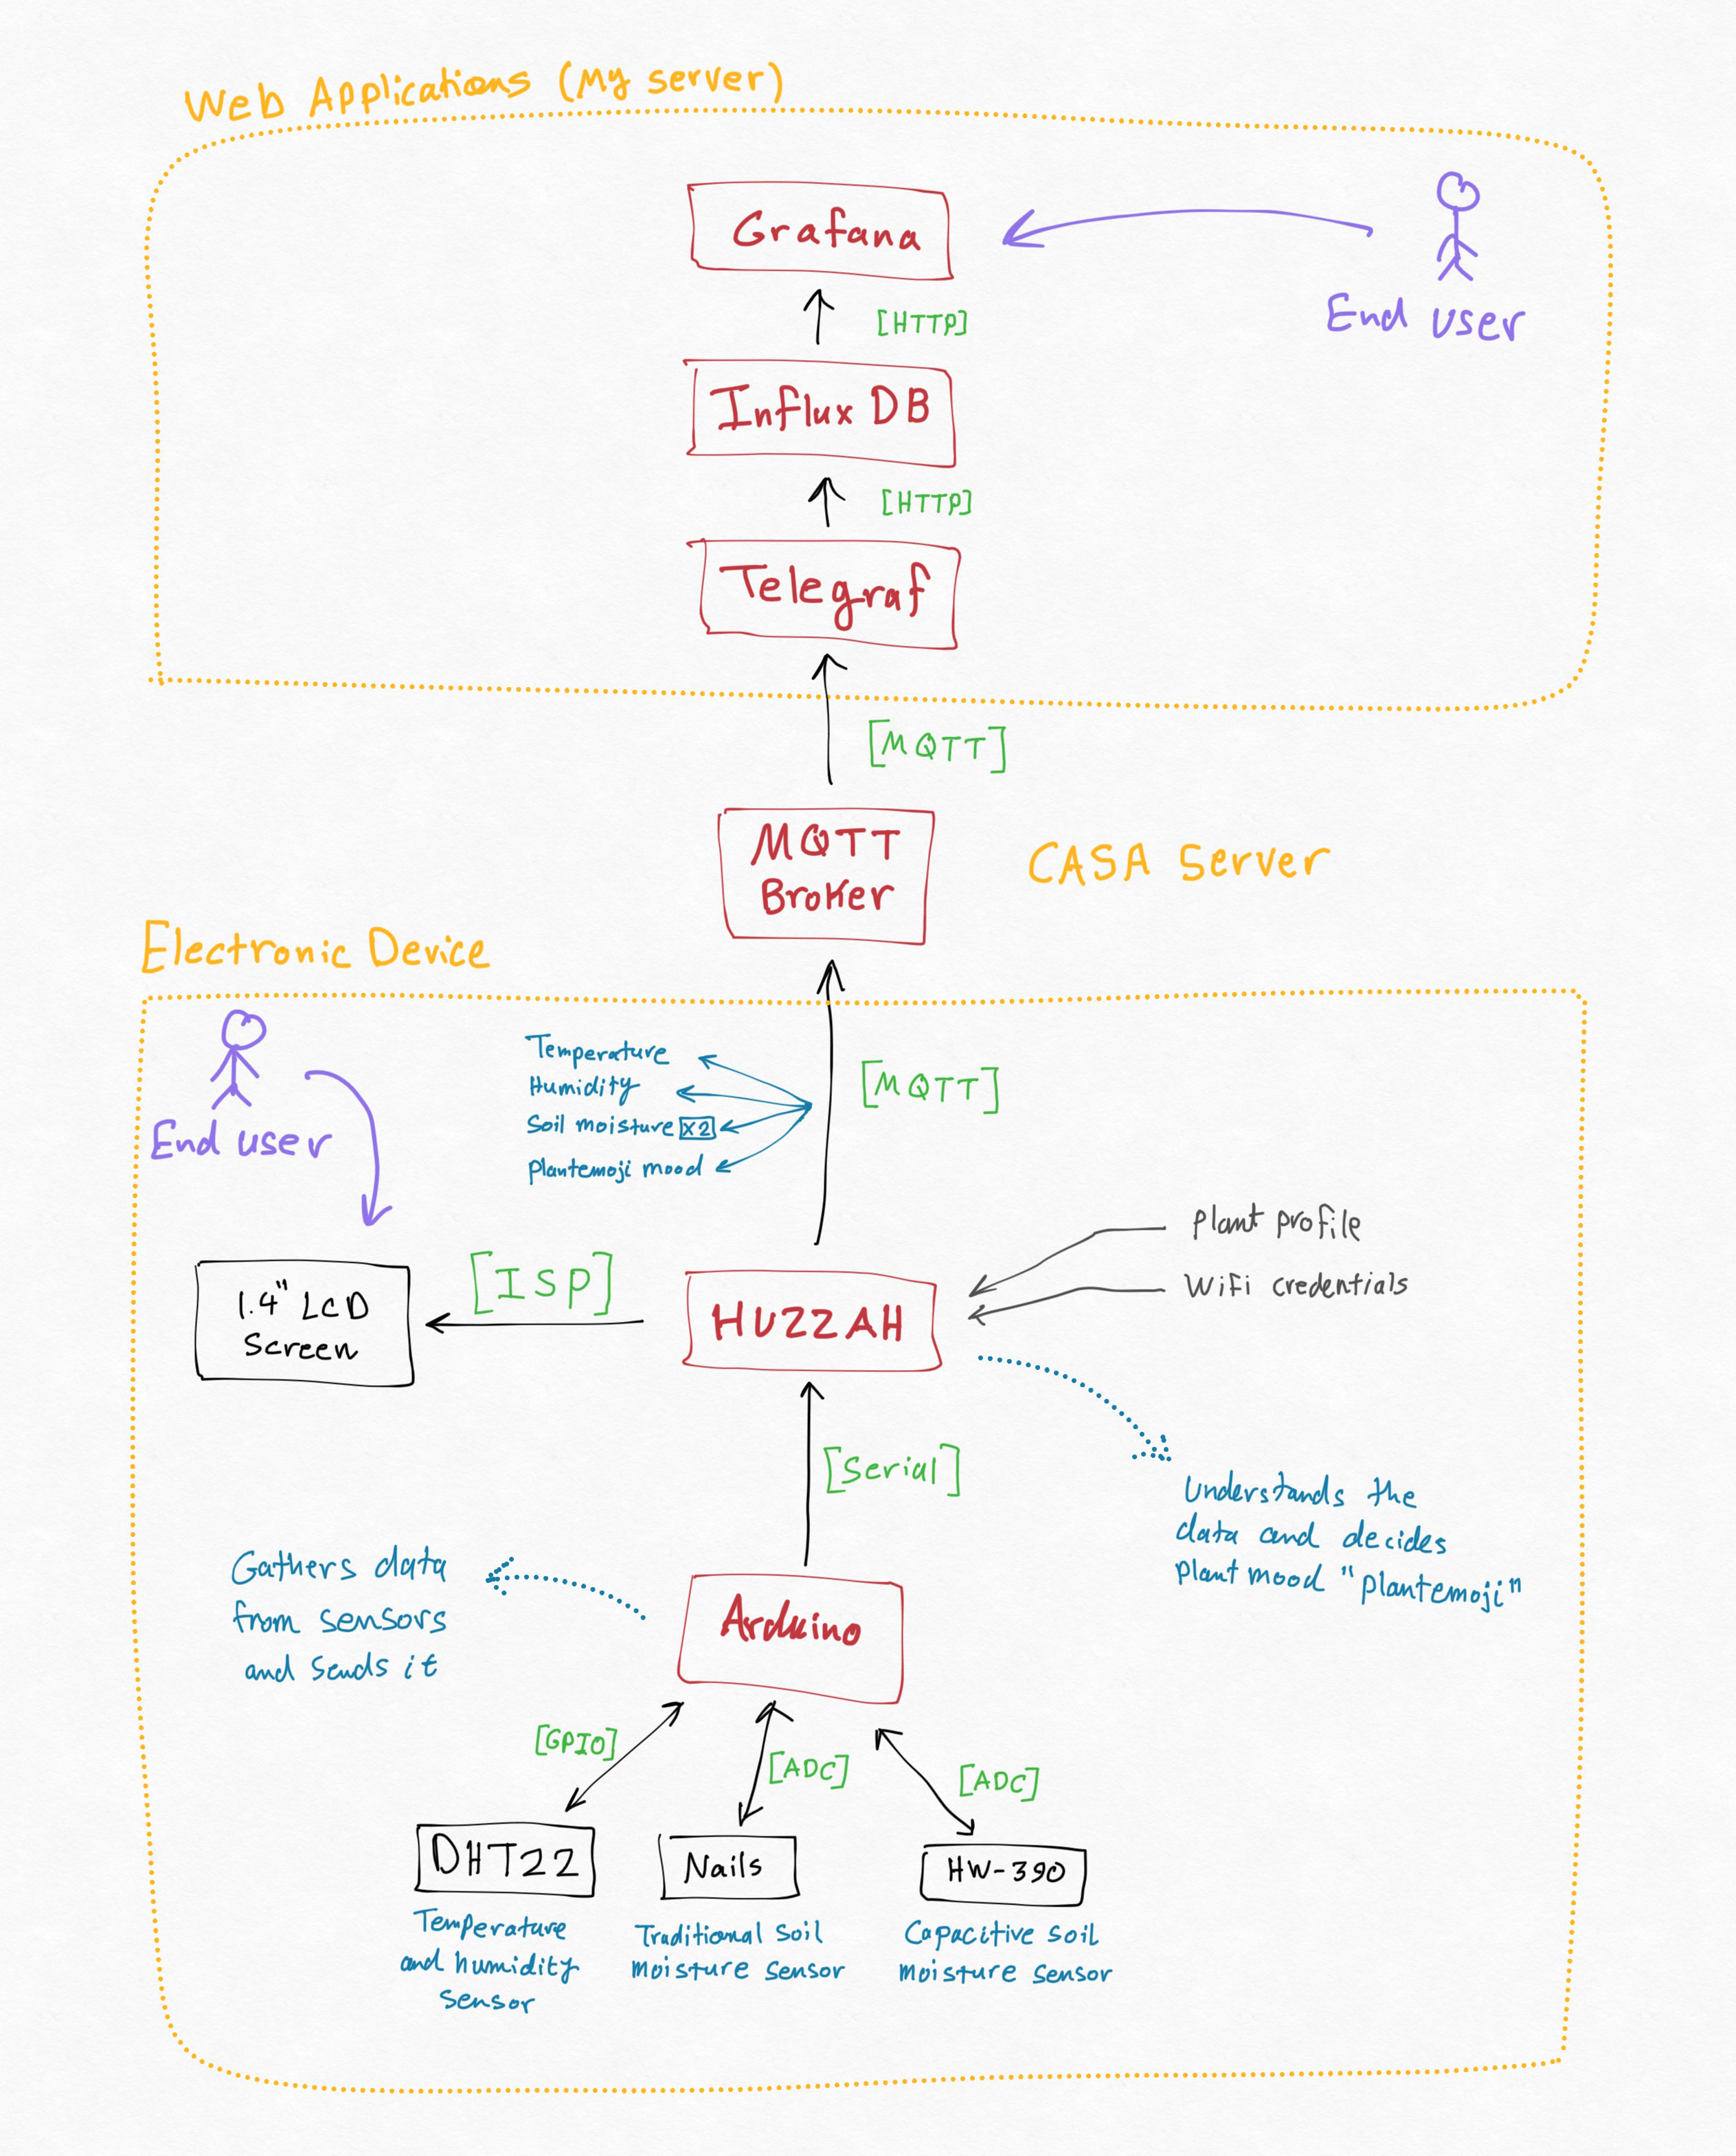 Web Applications (My server)
Grafana
End user
[HTTP]
Influx DB
[HTTP]
Telegraf
[MQTT]
MQTT
Broker
CASA Server
Electronic Device
End user
Temperature
Humidity
Soil moisture x2
Plantemoji mood
[MQTT]
Plant profile
WiFi credentials
1.4" LCD
Screen
[ISP]
HUZZAH
[Serial]
Understands the
data and decides
plant mood "plantemoji"
Gathers data
from sensors
and sends it
Arduino
[GPIO]
[ADC]
[ADC]
DHT22
Nails
HW-390
Temperature
and humidity
sensor
Traditional Soil
moisture sensor
Capacitive soil
moisture sensor